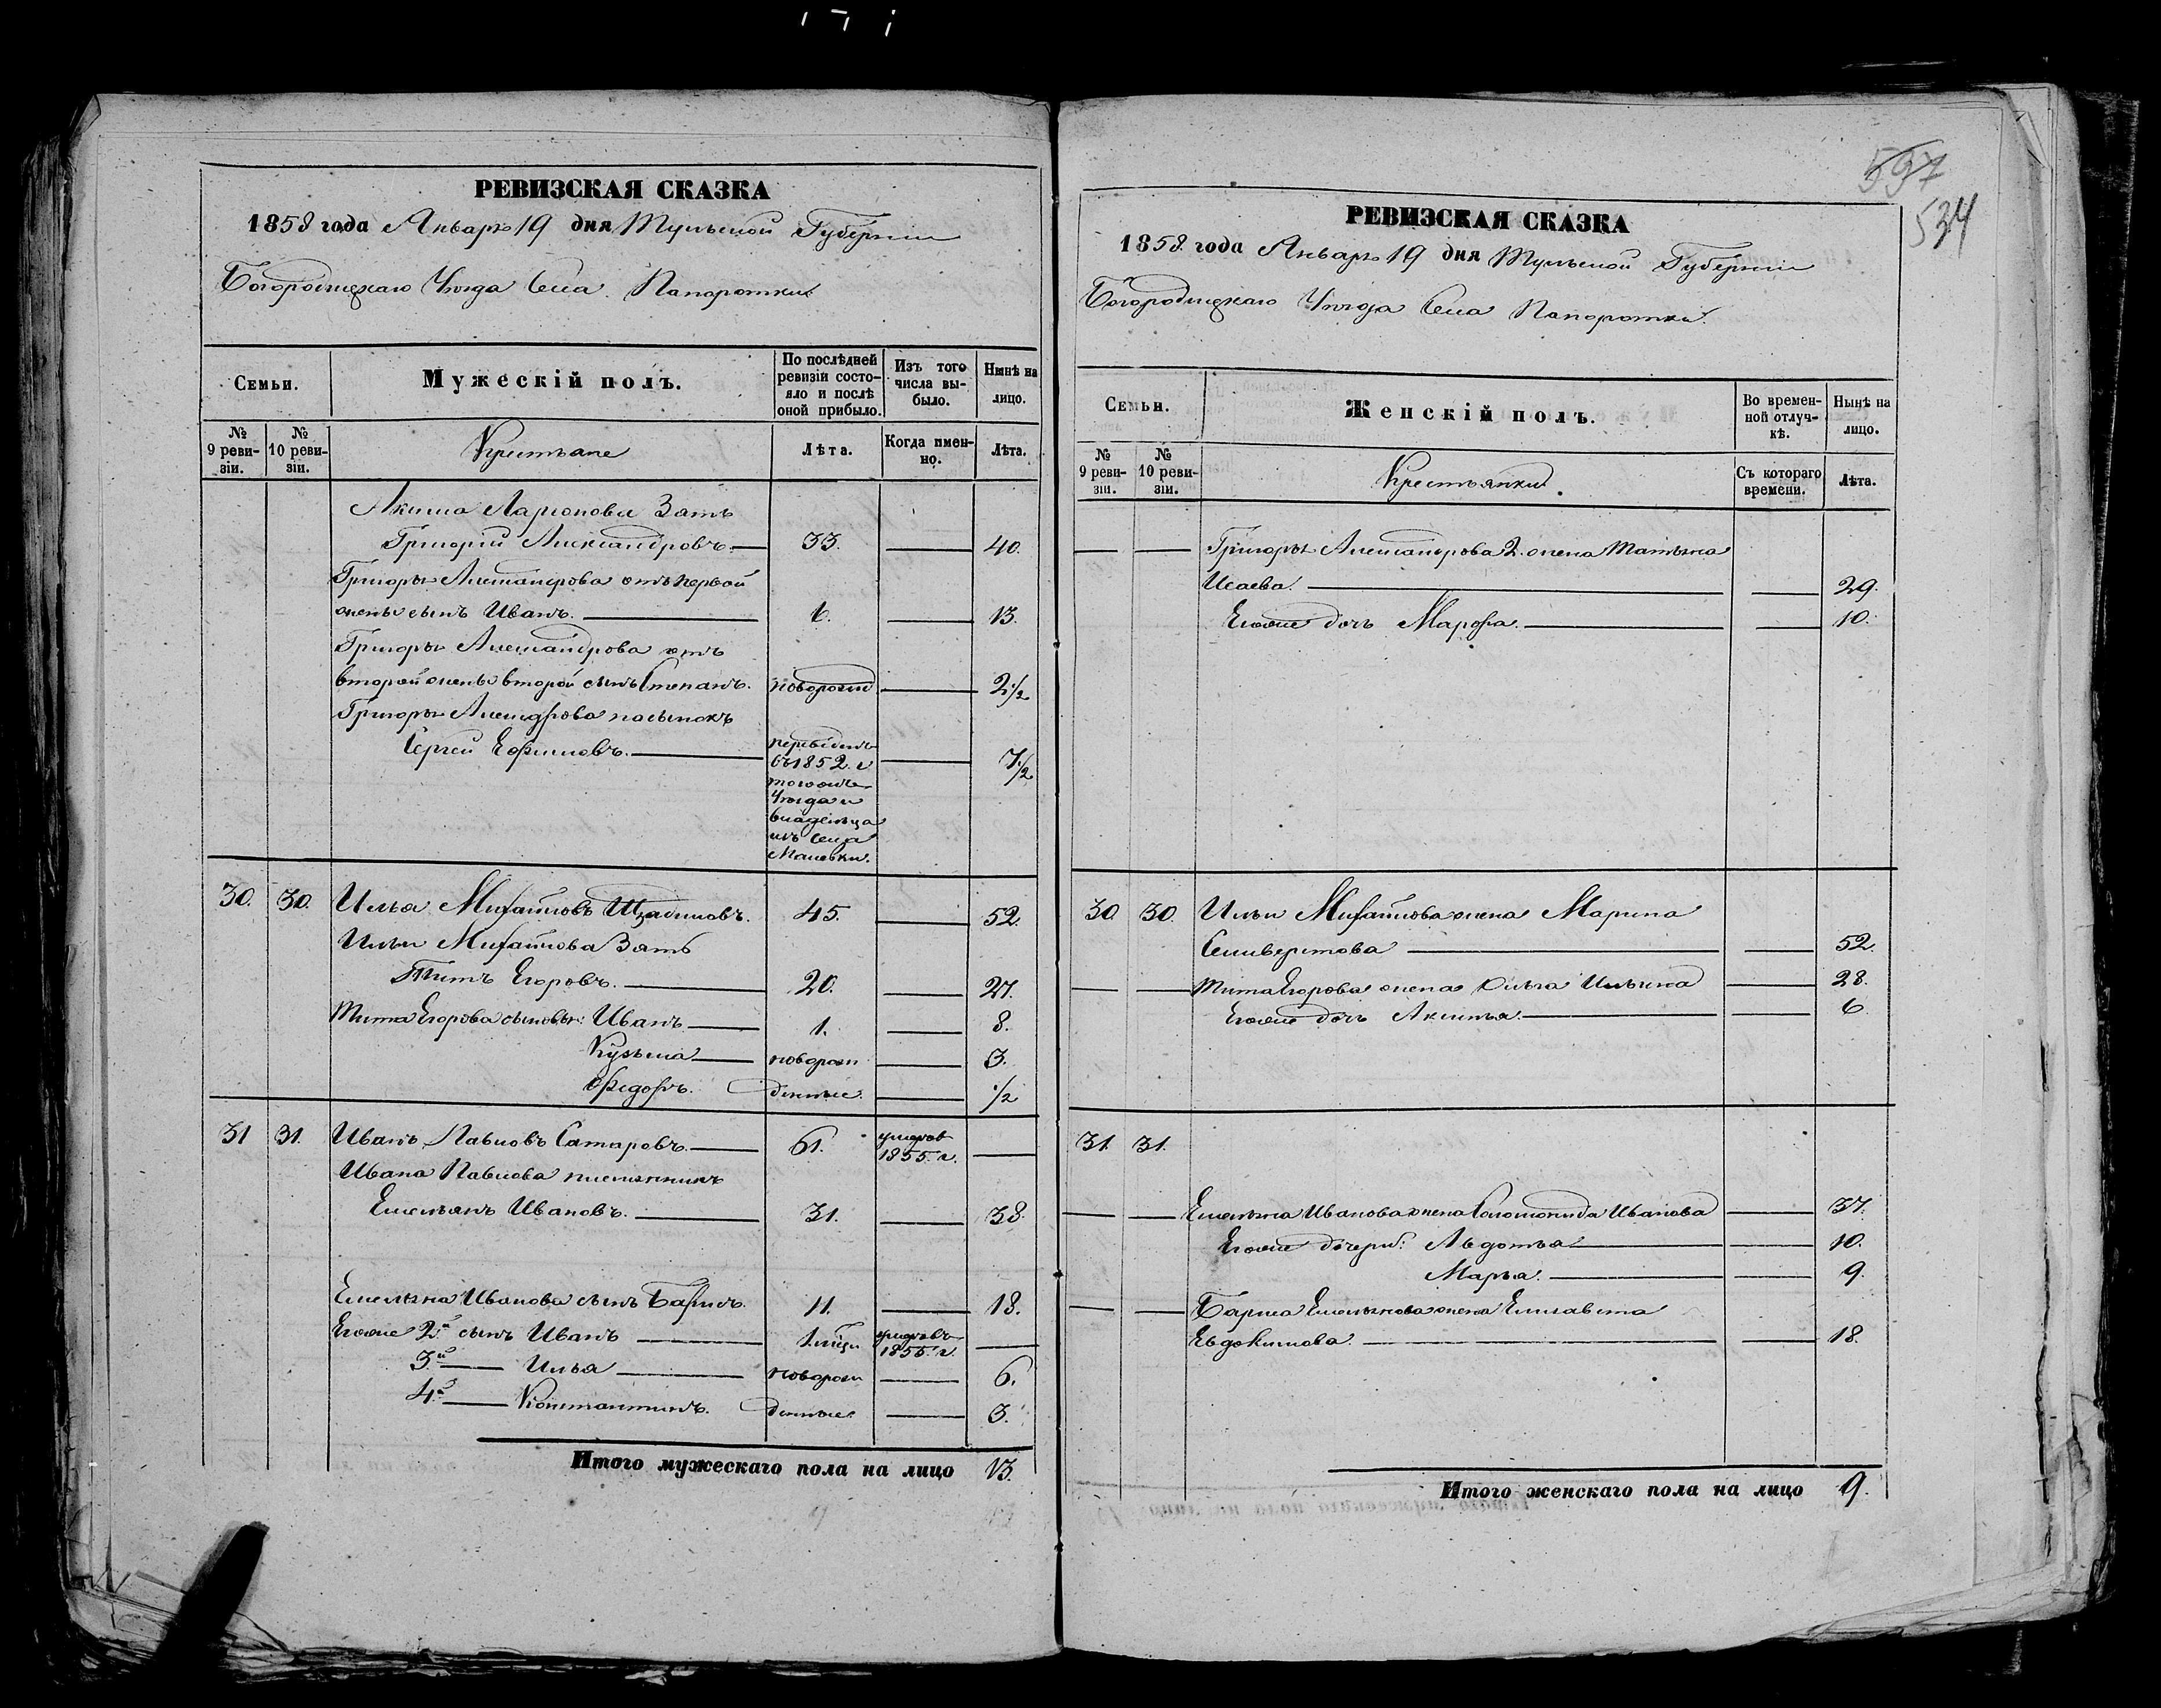 РЕВИЗСКАЯ СКАЗКА
1858 года Января 19 дня Тульской Губернии
Богородицкаго Уѣзда Села Папоротки
Семьи.
Мужескій полъ.
По послѣдней ревизіи состояло и послѣ оной прибыло.
Изъ того числа выбыло.
Нынѣ на лицо.
№ 9 ревизіи.
№ 10 ревизіи.
Крестьяне
Лѣта.
Когда именно.
Лѣта.
Акима Ларіонова Зять
Григорій Александровъ. 33. 40.
Григорья Александрова отъ первой
жены сынъ Иванъ. 6. 13.
Григорья Александрова отъ
второй жены второй сынъ Степанъ. новорож 2 1/2
Григорья Александрова пасынокъ
Сергей Ефимовъ. 7 1/2
переведенъ
въ 1852. г
тогоже
Уѣзда и
владельца
изъ Села
Малевки.
30. 30. Илья Михайловъ 45. 52.
Ильи Михайлова Зять
Титъ Егоровъ. 20. 27.
Тита Егорова сыновья: Иванъ 1. 8.
Кузьма новорож 3.
Федоръ. денные. 1/2
31 31. Иванъ Павловъ Сатаровъ. 61. умеръ въ 1855. г.
Ивана Павлова племянникъ
Емельянъ Ивановъ. 31. 38.
Емельяна Иванова сынъ Барисъ. 11. 18.
Егоже 2й сынъ Иванъ 1. мѣся умеръ въ 1855. г.
3й Илья новорож 6.
4й Константинъ. денные. 3.
Итого мужескаго пола на лицо 13.
597
534
РЕВИЗСКАЯ СКАЗКА
1858. года Января 19 дня Тульской Губерніи
Богородицкаго Уѣзда Села Папоротки.
Семьи.
Женскій полъ.
Во временной отлучкѣ.
Нынѣ на лицо.
№ 9 ревизіи.
№ 10 ревизіи.
Крестьянки.
Съ котораго времени.
Лѣта.
Григорья Александрова 2. жена Татьяна
Исаева. 29.
Егоже дочь Марфа. 10.
30. 30. Ильи Михайлова жена Марина
Селиверстова 52.
Тита Егорова жена Ильина 28.
Егоже дочь Аксинья 6
31. 31.
Емельяна Иванова жена Соломонида Иванова 37.
Егоже дочери: Авдотья 10.
Марья. 9.
Бариса Емельянова жена Елисавета
Евдокимова. 18.
Итого женскаго пола на лицо 9.